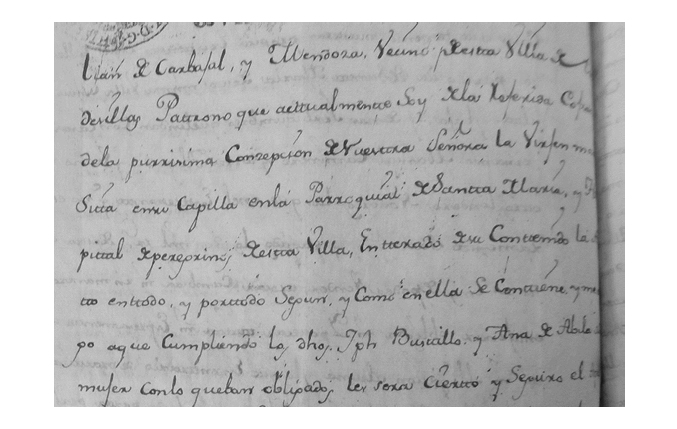 Juan de Carbajal, y Mendoza, Vecino desta Villa de
desillas Patrono que acttualmentte Soy de la Referida Cofra
dela purissima Conzepsion de Nuesttra Señora la Virjen ma
Sitta en su Capilla en la Parroquial de Santta Maria, y
pittal de peregrinos desta Villa, Entterado de su Conttenido la
tto en ttodo, y por ttodo Segun, y Como en ella Se Conttiene, y me
go a que Cumpliendo los dhos. Jph Buscallo, y Ana de
mujer con lo que ban obligados les sera Ciertto y Seguro el